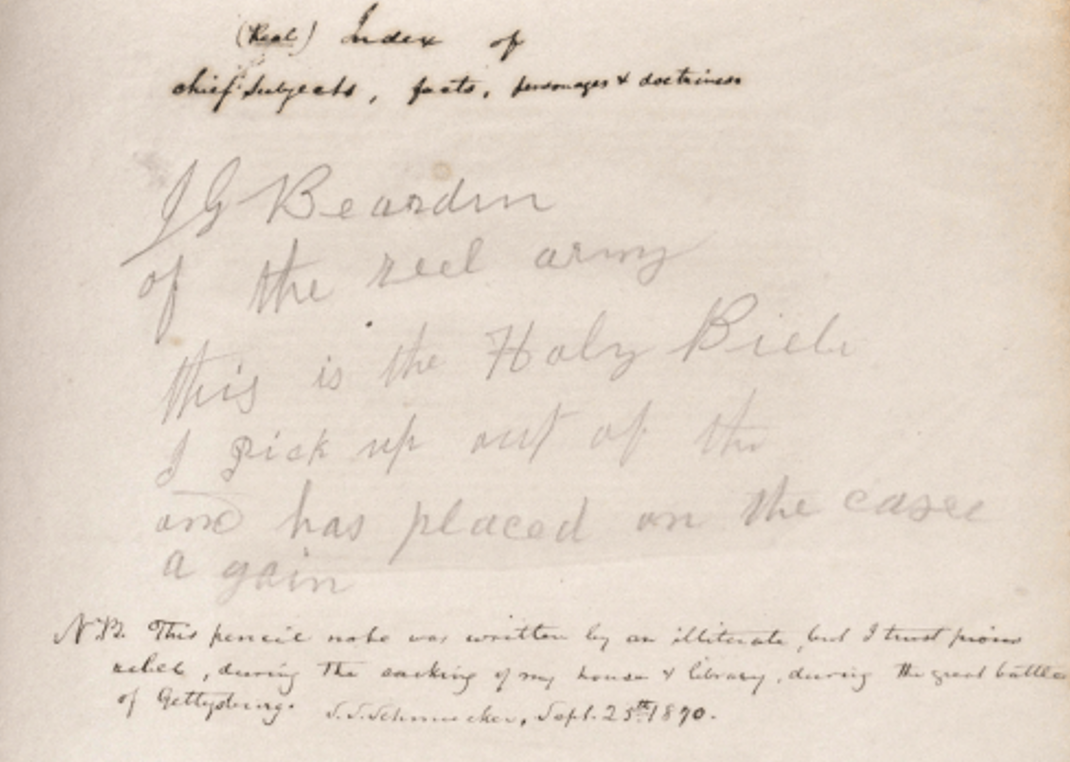 (Real) Index of
chief subjects, facts, personages & doctriness
J G Beardin
of the reel army
this is the Holy Bieb
I pick up out of the
and has placed on the casee
a gain
N.B. This pencil note was written by an illiterate, but I trust pious
rebel, during the sacking of my house & library, during the great battle
of Gettysburg. S.S. Schmucker, Sept. 25th 1870.